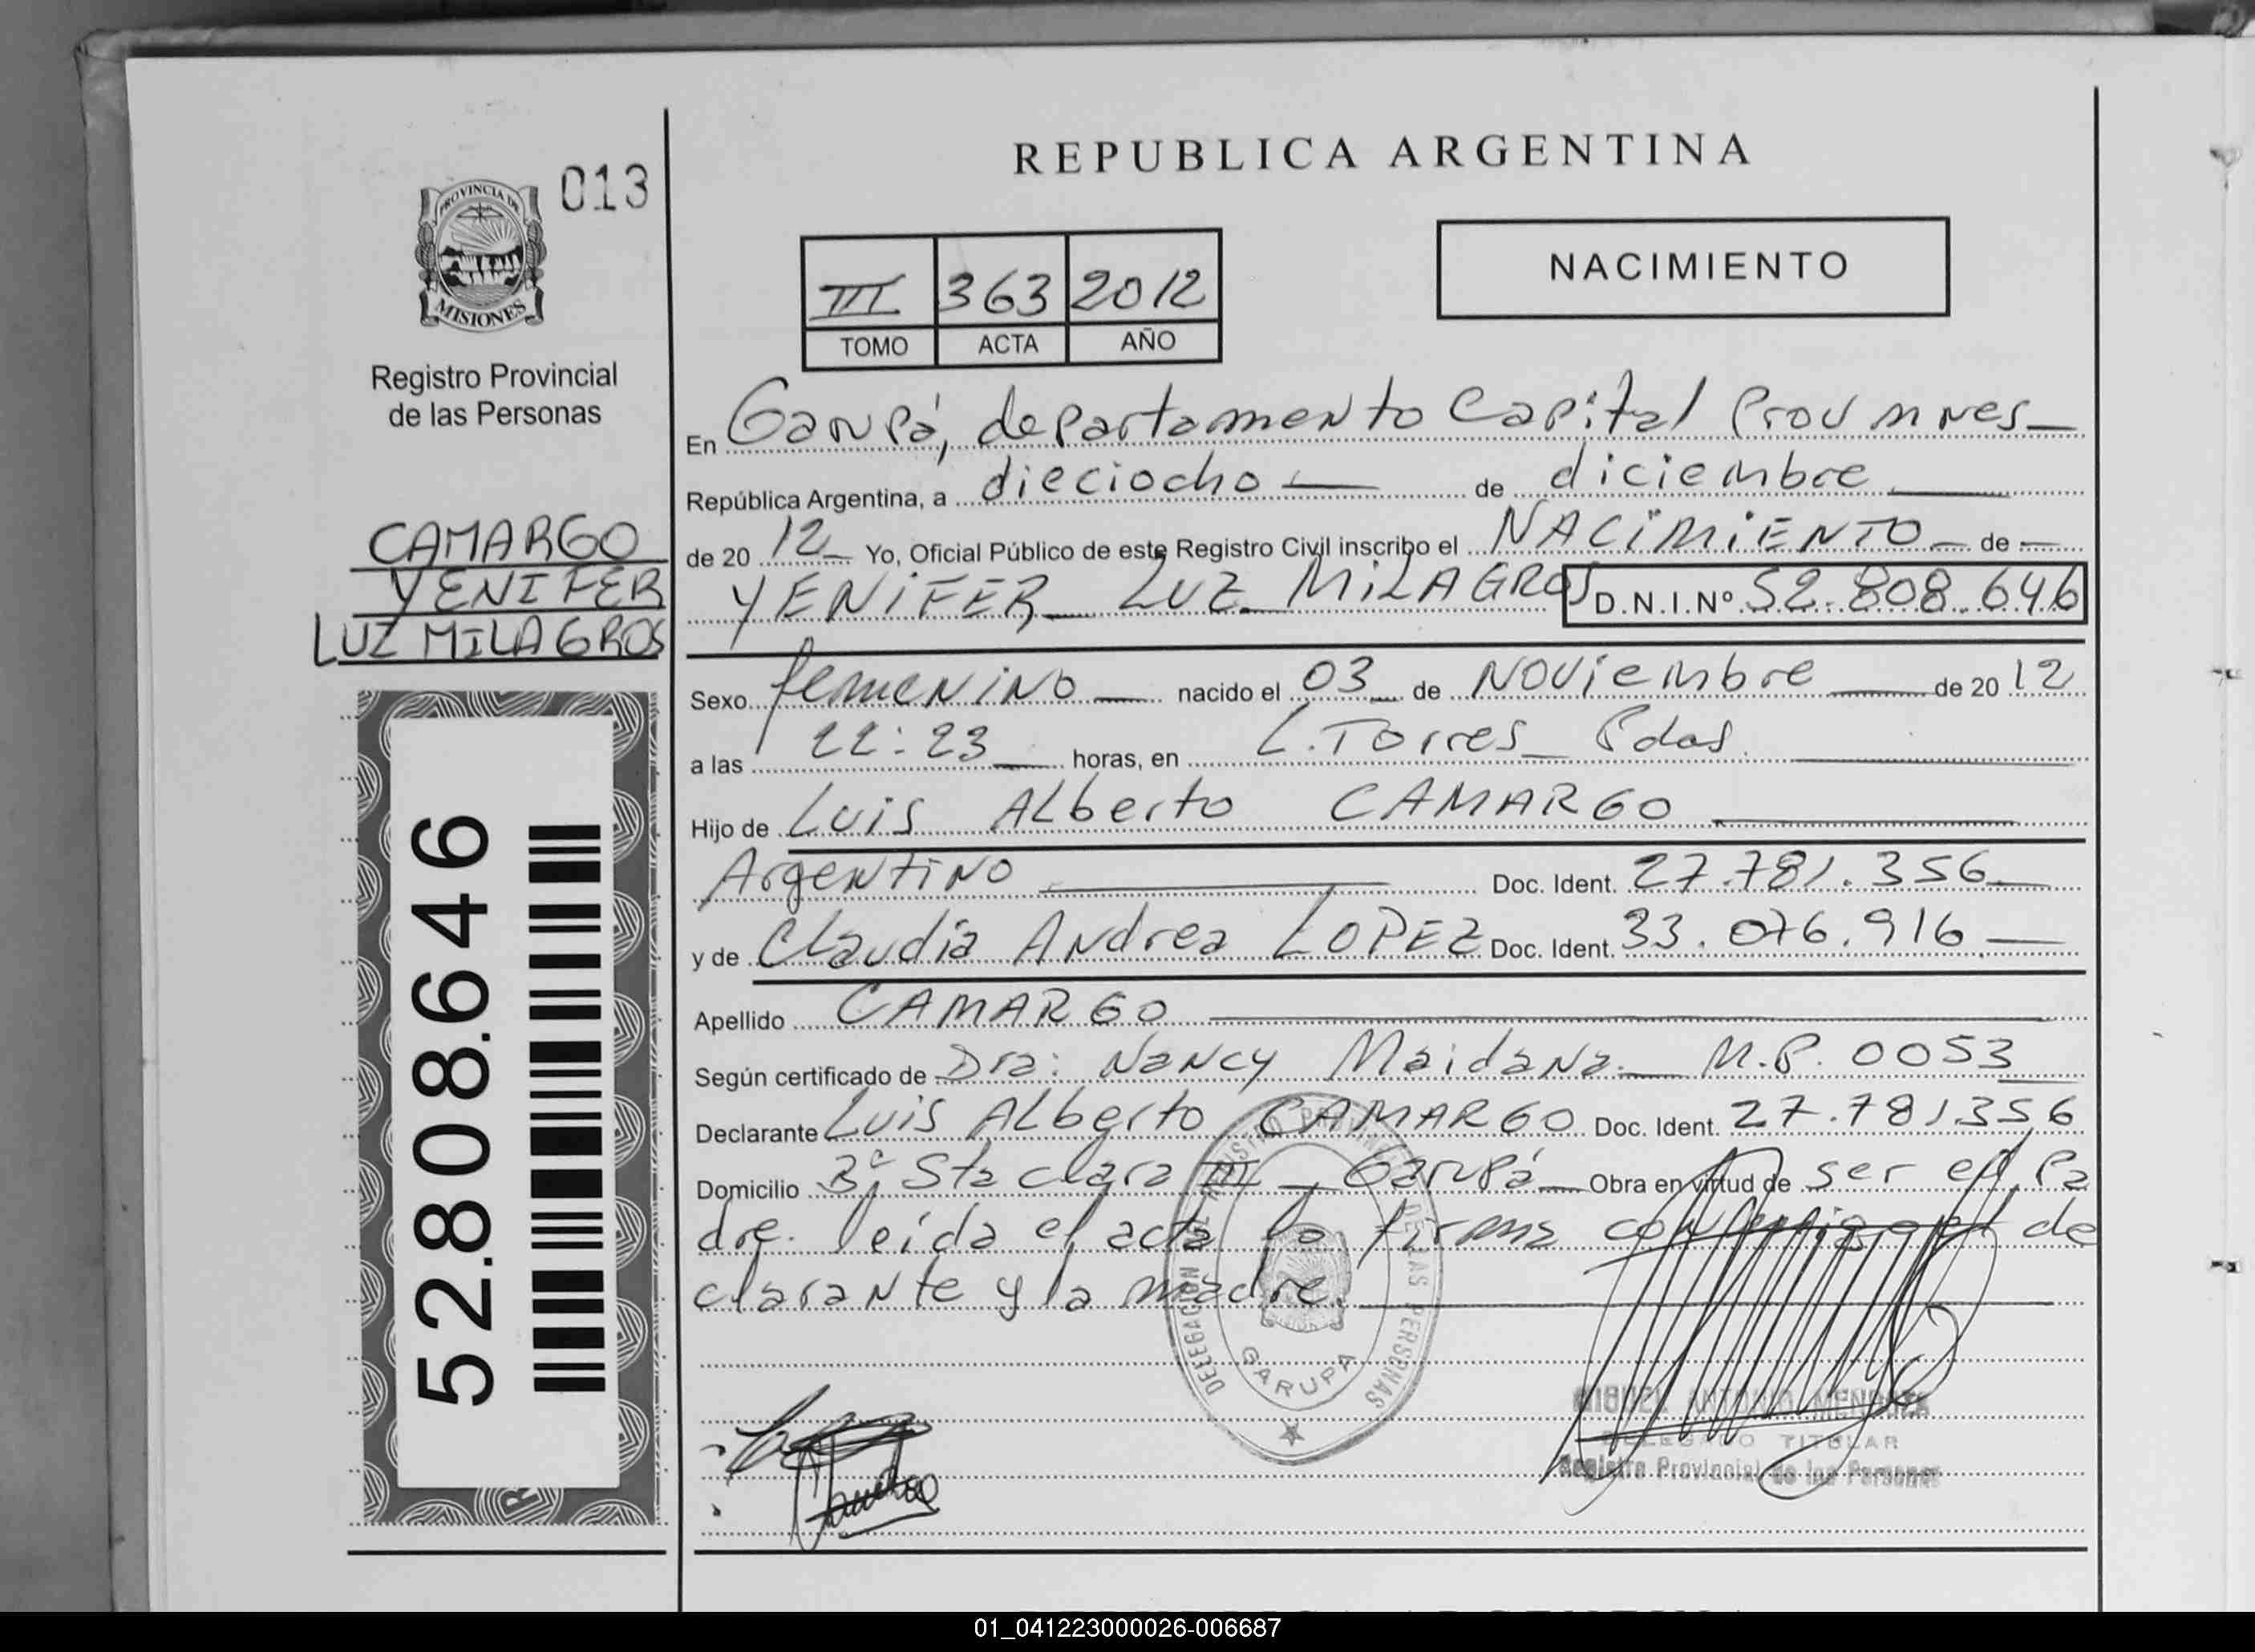 REPUBLICA ARGENTINA
013
PROVINCIA DE
MISIONES
Registro Provincial
de las Personas
CAMARGO
YENIFER
LUZ MILAGROS
52.808.646
III 363 2012
TOMO ACTA AÑO
NACIMIENTO
En Garupá, departamento Capital Prov Mnes
República Argentina, a dieciocho de diciembre
de 20 12 Yo, Oficial Público de este Registro Civil inscribo el NACIMIENTO de
YENIFER LUZ MILAGROS D.N.I.Nº 52.808.646
Sexo femenino nacido el 03 de Noviembre de 20 12
a las 22:23 horas, en L. Torres Pdas.
Hijo de Luis Alberto CAMARGO
Argentino Doc. Ident. 27.781.356
y de Claudia Andrea LOPEZ Doc. Ident. 33.076.916
Apellido CAMARGO
Según certificado de Dra: Nancy Maidana M.P. 0053
Declarante Luis Alberto CAMARGO Doc. Ident. 27.781356
Domicilio Bº Sta clara III Garupá Obra en virtud de ser el Pa
dre. leida el acta la firma conmigo el de
clarante y la madre.
DELEGACION DEL REGISTRO PROVINCIAL DE LAS PERSONAS
GARUPA
MIGUEL ANTONIO
DELEGADO TITULAR
Registro Provincial de las Personas
01_041223000026-006687